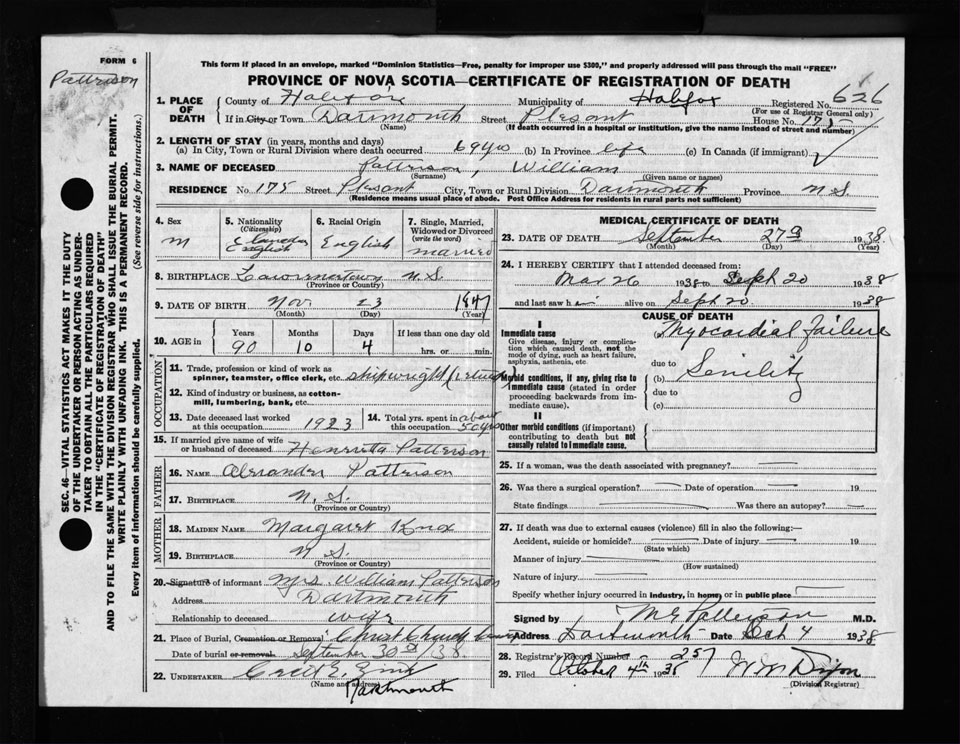 FORM 6
Patterson
This form if placed in an envelope, marked "Dominion Statistics—Free, penalty for improper use $300," and properly addressed will pass through the mail "FREE"
PROVINCE OF NOVA SCOTIA—CERTIFICATE OF REGISTRATION OF DEATH
1. PLACE OF DEATH County of Halifax Municipality of Halifax Registered No. 626
(For use of Registrar General only)
If in City or Town Dartmouth Street Plesant House No. 175
(Name) (If death occurred in a hospital or institution, give the name instead of street and number)
2. LENGTH OF STAY (in years, months and days)
(a) In City, Town or Rural Division where death occurred 69 yrs (b) In Province life (c) In Canada (if immigrant)
3. NAME OF DECEASED Patterson, William
(Surname) (Given name or names)
RESIDENCE No. 175 Street Plesant City, Town or Rural Division Dartmouth Province N.S.
(Residence means usual place of abode. Post Office Address for residents in rural parts not sufficient)
4. Sex 5. Nationality (Citizenship) 6. Racial Origin 7. Single, Married, Widowed or Divorced (write the word)
m Canadian English English married
8. BIRTHPLACE Lawrencetown N.S.
(Province or Country)
9. DATE OF BIRTH Nov 23 1847
(Month) (Day) (Year)
10. AGE in Years Months Days If less than one day old
90 10 4 hrs. or min.
OCCUPATION
11. Trade, profession or kind of work as spinner, teamster, office clerk, etc. shipwright (retired)
12. Kind of industry or business, as cotton-mill, lumbering, bank, etc.
13. Date deceased last worked at this occupation 1923 14. Total yrs. spent in this occupation about 50 yrs
15. If married give name of wife or husband of deceased Henrietta Patterson
FATHER
16. NAME Alexander Patterson
17. BIRTHPLACE N.S.
(Province or Country)
MOTHER
18. MAIDEN NAME Margaret Knox
19. BIRTHPLACE N S.
(Province or Country)
20. Signature of informant Mrs. William Patterson
Address Dartmouth
Relationship to deceased wife
21. Place of Burial, Cremation or Removal Christ Church
Date of burial or removal September 30th/38
22. UNDERTAKER
(Name and address)
Dartmouth
MEDICAL CERTIFICATE OF DEATH
23. DATE OF DEATH September 27th 1938
(Month) (Day)
24. I HEREBY CERTIFY that I attended deceased from:
Mar 26 1938 to Sept 20 1938
and last saw him alive on Sept 20 1938
CAUSE OF DEATH
I
Immediate cause
Give disease, injury or complication which caused death, not the mode of dying, such as heart failure, asphyxia, asthenia, etc.
Myocardial failure
due to
Morbid conditions, if any, giving rise to immediate cause (stated in order proceeding backwards from immediate cause).
(b) Senility
due to
(c)
II
Other morbid conditions (if important) contributing to death but not causally related to immediate cause.
25. If a woman, was the death associated with pregnancy?
26. Was there a surgical operation? Date of operation 19
State findings Was there an autopsy?
27. If death was due to external causes (violence) fill in also the following:—
Accident, suicide or homicide? Date of injury 19
(State which)
Manner of injury
(How sustained)
Nature of injury
Specify whether injury occurred in industry, in home, or in public place
Signed by M G Patterson M.D.
Address Dartmouth Date Oct 4 1938
28. Registrar's Record Number 257
29. Filed October 4th 1938
(Division Registrar)
SEC. 46—VITAL STATISTICS ACT MAKES IT THE DUTY
OF THE UNDERTAKER OR PERSON ACTING AS UNDER-
TAKER TO OBTAIN ALL THE PARTICULARS REQUIRED
IN THE "CERTIFICATE OF REGISTRATION OF DEATH"
AND TO FILE THE SAME WITH THE DIVISION REGISTRAR WHO SHALL ISSUE THE BURIAL PERMIT.
WRITE PLAINLY WITH UNFADING INK. THIS IS A PERMANENT RECORD.
Every item of information should be carefully supplied. (See reverse side for instructions.)